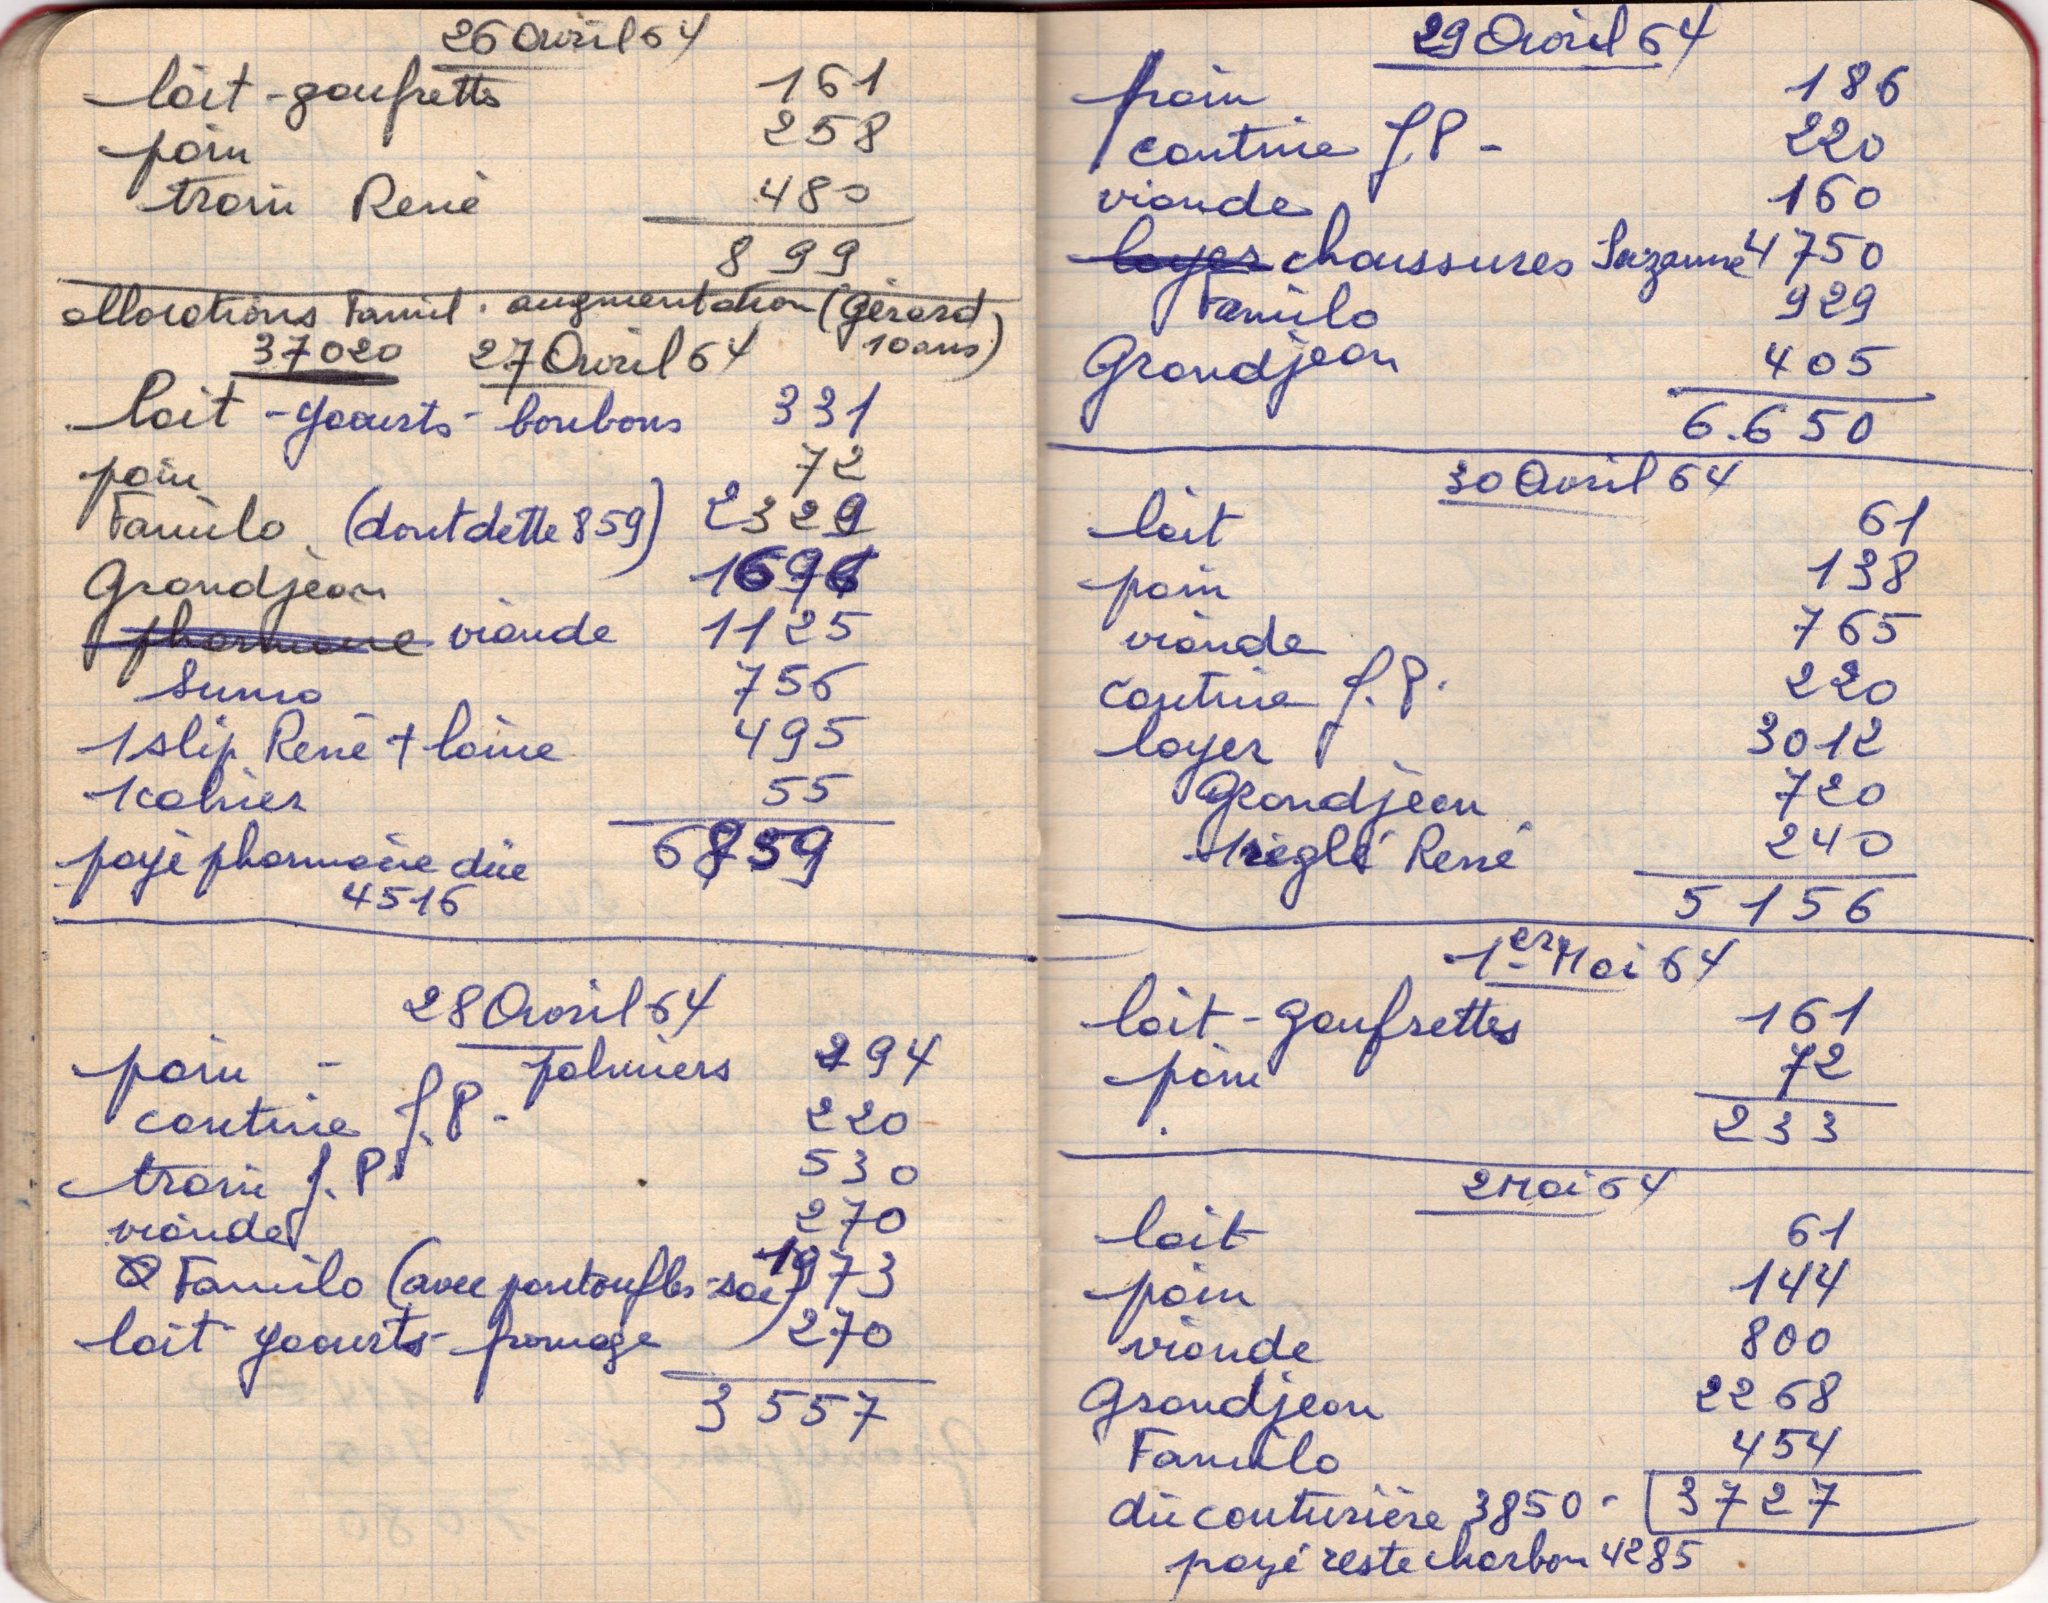 26 Avril 64
lait - gaufrettes 161
pain 258
train René 480
899
allocations Famil. augmentation (Gérard
37020 27 Avril 64 10 ans)
lait - yaourts - bonbons 331
pain 72
Familo (dont dette 859) 2329
Grandjean 1696
pharmacie viande 1125
Suma 756
1 slip René + laine 495
1 cahier 55
6859
payé pharmacie due
4516
28 Avril 64
pain - palmiers 294
cantine J.P. - 220
train J.P. 530
viande 270
Familo (avec pantoufles - sac) 1973
lait yaourts - fromage 270
3557
29 Avril 64
pain 186
cantine J.P - 220
viande 160
loyer chaussures Suzanne 4750
Familo 929
Grandjean 405
6.650
30 Avril 64
lait 61
pain 138
viande 765
cantine J.P. 220
loyer 3012
Grandjean 720
1 règle René 240
5156
1er Mai 64
lait - gaufrettes 161
pain 72
233
2 Mai 64
lait 61
pain 144
viande 800
Grandjean 2268
Familo 454
dû couturière 3850 - 3727
payé reste charbon 4285